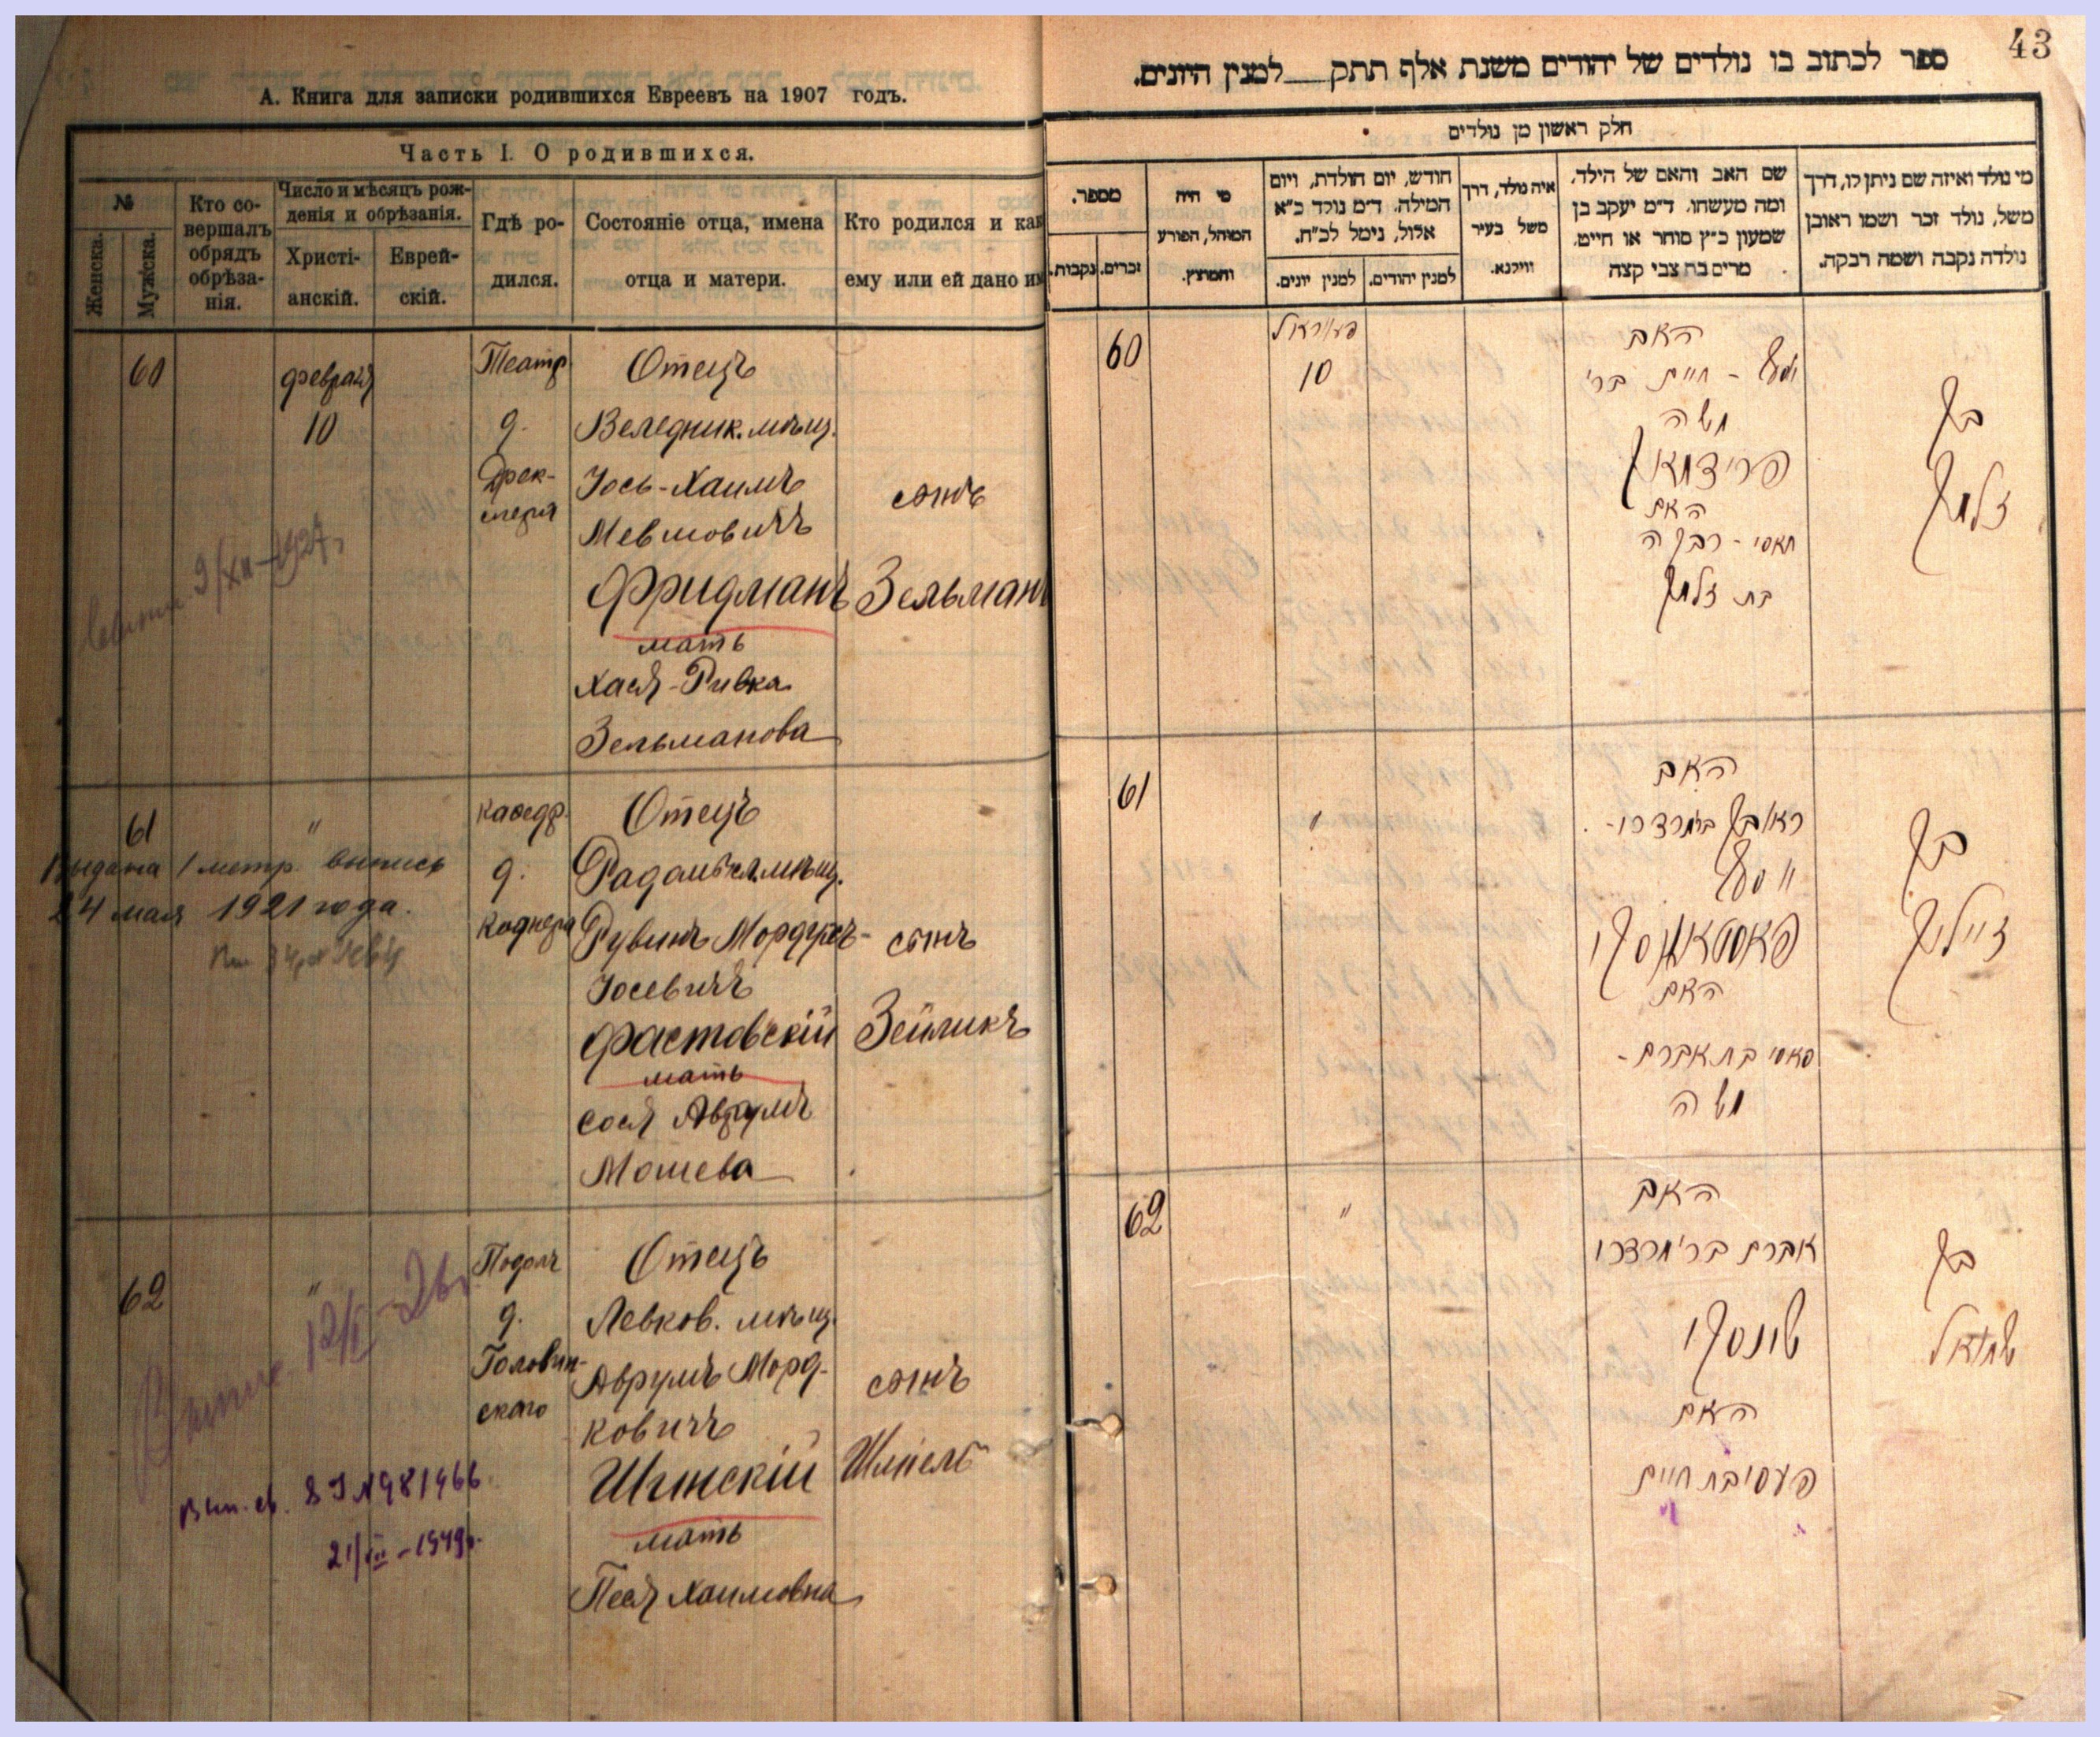 А. Книга для записки родившихся Евреевъ на 1907 годъ.
Часть I. О родившихся.
№
Женска.
Мужска.
Кто со-
вершалъ
обрядъ
обрѣза-
нія.
Число и мѣсяцъ рож-
денія и обрѣзанія.
Христі-
анскій.
Еврей-
скій.
Гдѣ ро-
дился.
Состояніе отца, имена
отца и матери.
Кто родился и как
ему или ей дано им
60
февраля
10
Театр.
д.
Отецъ
Веледник. мѣщ.
Іось-Хаимъ
Мевшовичъ
Фридманъ
мать
Хася-Ривка
Зельманова
сынъ
Зельманъ
9/XII-1927.
61
"
Выдана 1 метр. выпись
24 мая 1921 года.
д.
Коднера
Отецъ
Радомысл. мѣщ.
Рувинъ Мордухъ-
Іосевичъ
Фастовскій
мать
Сося Аврумъ
Мошева
сынъ
Зейликъ
62
"
Подолъ
д.
Головин-
скаго
Отецъ
Левков. мѣщ.
Аврумъ Морд-
ковичъ
Шинскій
мать
Песя Хаимовна
сынъ
Шміель
Вып. св. №981466
21/VII-1949г.
43
ספר לכתוב בו נולדים של יהודים משנת אלף תתק למנין היונים.
חלק ראשון מן נולדים
מספר.
נקבות.
זכרים.
מי היה
המוהל, הפורע
והמוצץ.
חודש, יום הולדת, ויום
המילה. ד״מ נולד כ״א
אלול, נימל לכ״ח.
למנין יונים.
למנין יהודים.
איה נולד, דרך
משל בעיר
ווילנא.
שם האב והאם של הילד,
ומה מעשהו. ד״מ יעקב בן
שמעון כ״ץ סוחר או חייט.
מרים בת צבי קצה
מי נולד ואיזה שם ניתן לו, דרך
משל, נולד זכר ושמו ראובן
נולדה נקבה ושמה רבקה.
60
10
האב
יוסף - חיים בר׳
משה
פרידמאן
האם
חאסי - רבקה
בת זלמן
בן
זלמן
61
"
האב
ראובן
יוסף
האם
סאסי בת אברם -
משה
בן
זייליק
62
"
האב
אברם בר׳ מרדכי
שינסקי
האם
פעסי בת חיים
בן
שמואל